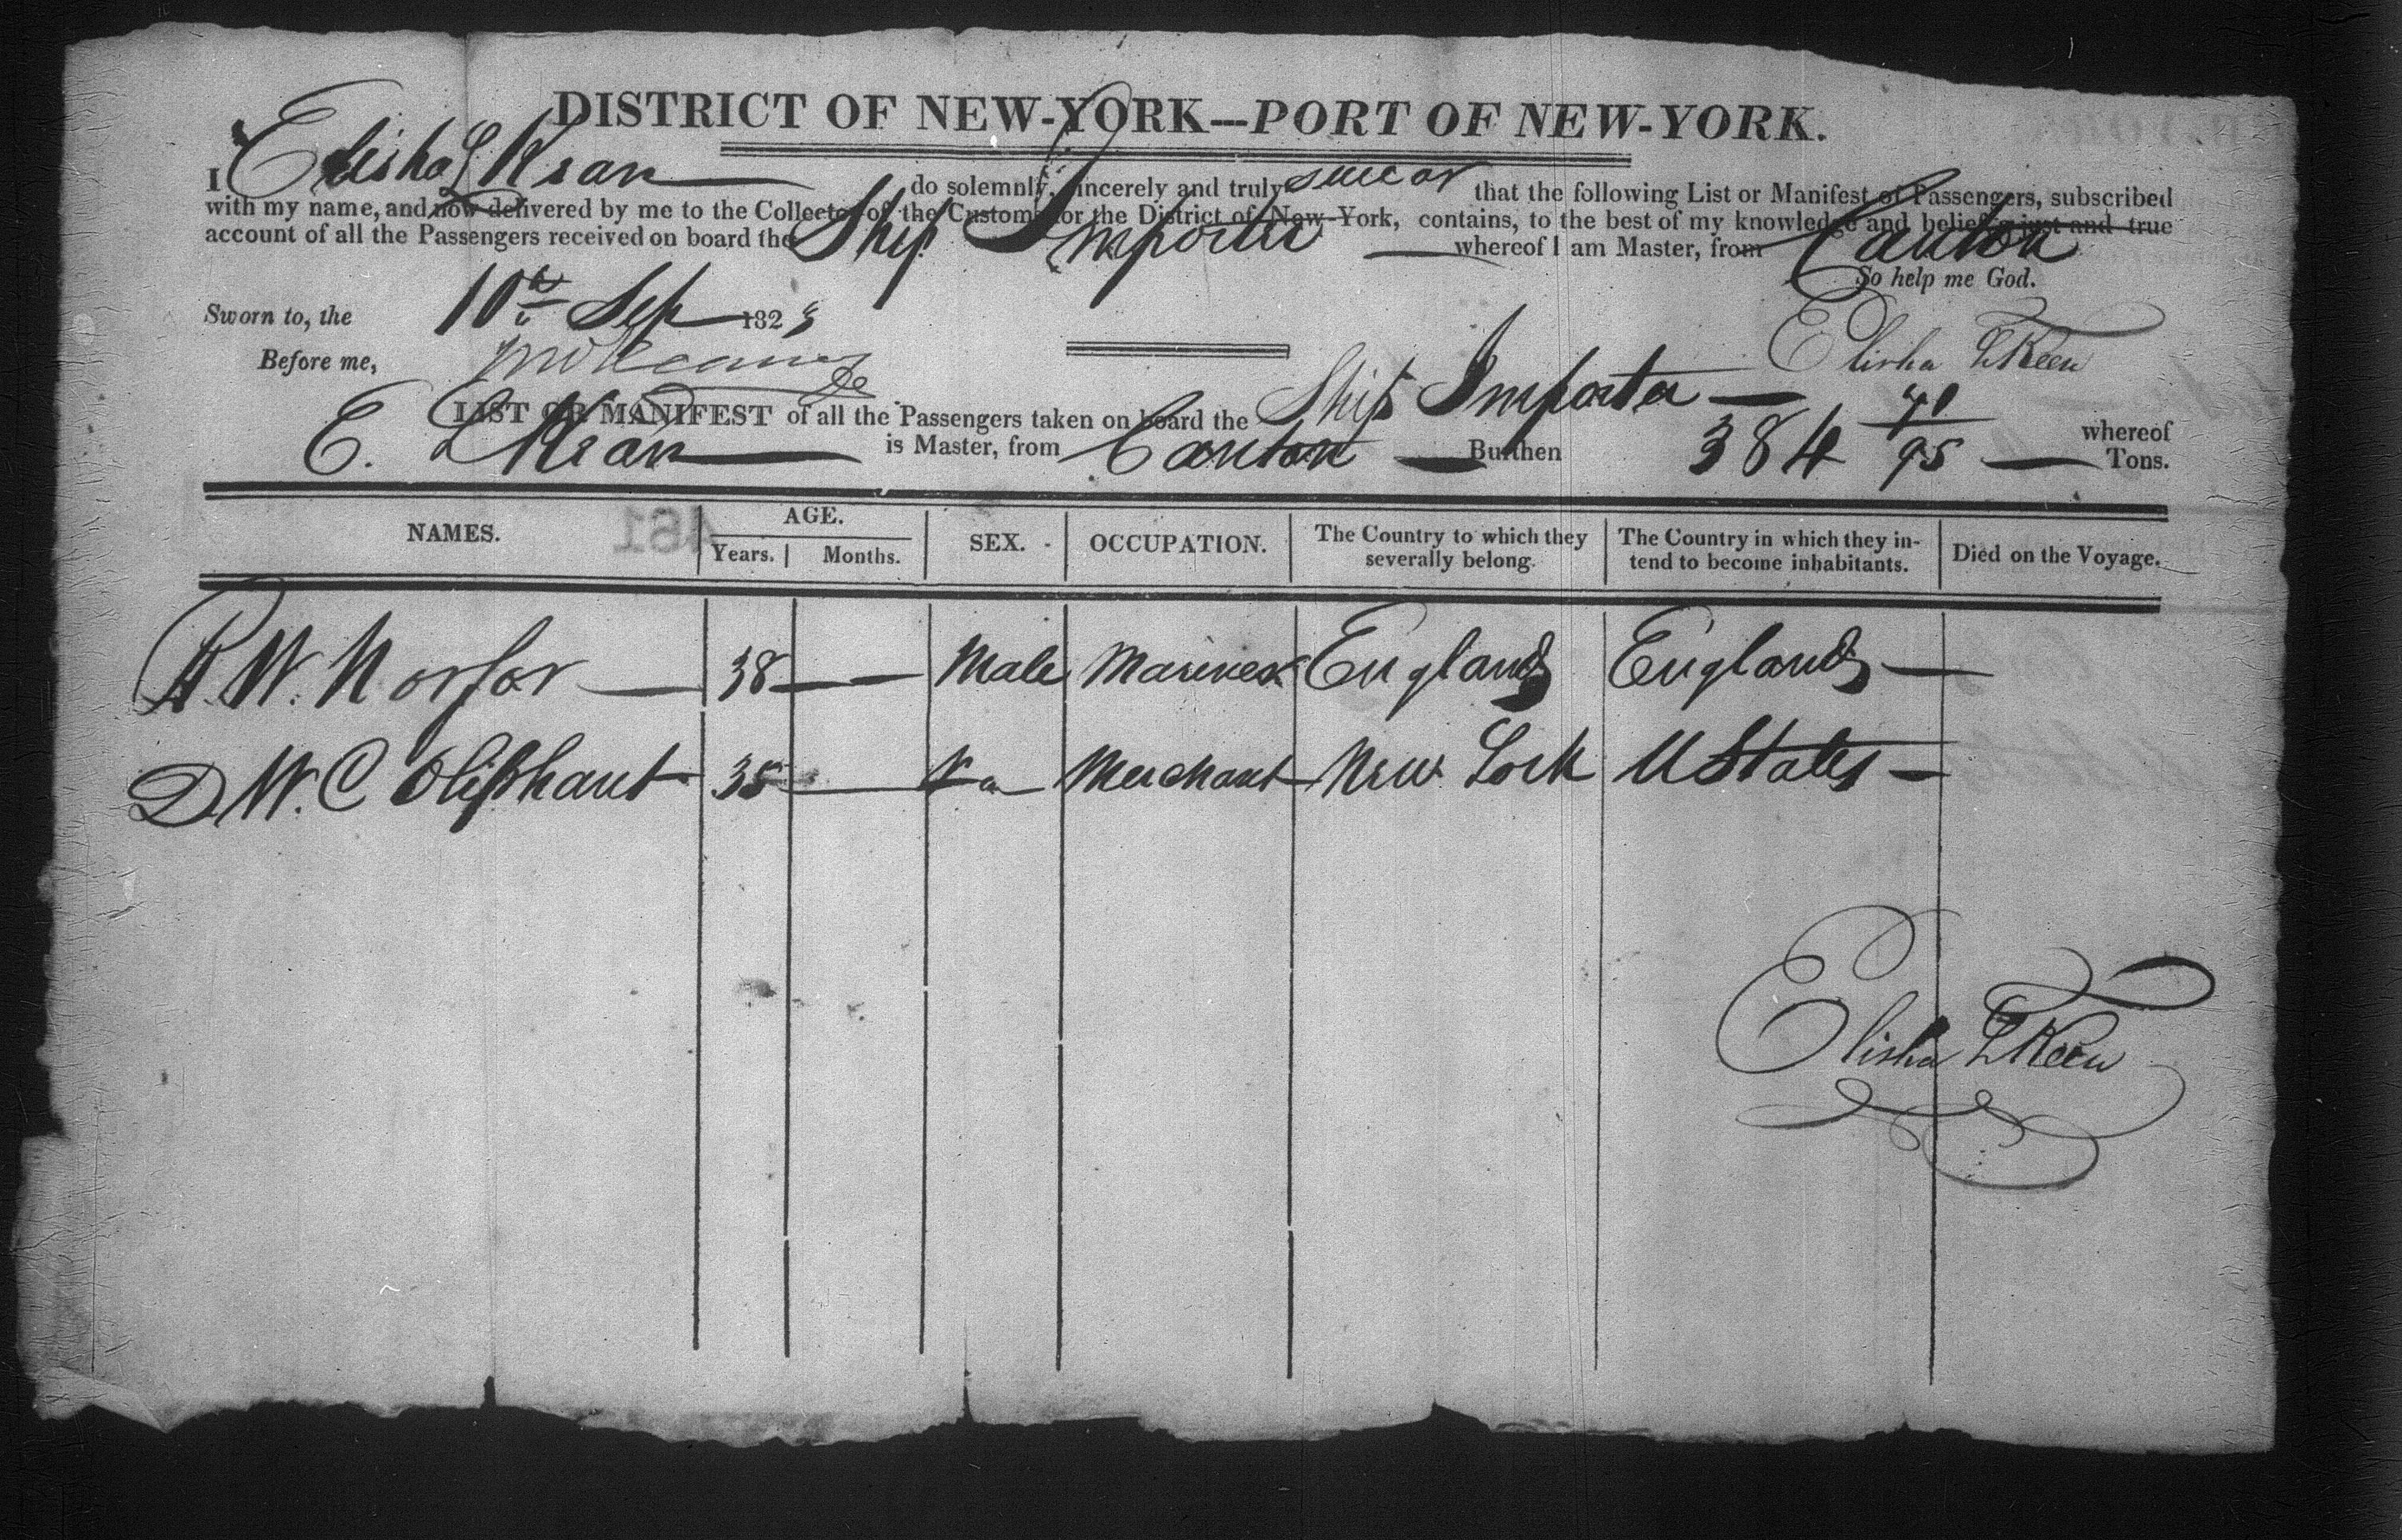 DISTRICT OF NEW-YORK---PORT OF NEW-YORK.
I Elisha L Kean do solemnly, sincerely and truly swear that the following List or Manifest of Passengers, subscribed
with my name, and now delivered by me to the Collector of the Customs for the District of New-York, contains, to the best of my knowledge and belief a just and true
account of all the Passengers received on board the Ship Importer whereof I am Master, from Canton
So help me God.
Sworn to, the 10th Sep 182
Before me,
Elisha L Keen
LIST OR MANIFEST of all the Passengers taken on board the Ship Importer whereof
E. L Kean is Master, from Canton Burthen 384 41/95 Tons.
NAMES. AGE. SEX. OCCUPATION. The Country to which they severally belong. The Country in which they intend to become inhabitants. Died on the Voyage.
Years. Months.
W. Norfor 38 Male Mariner England England
D W. C Oliphant 35 Merchant New York U States
Elisha L Keen
461